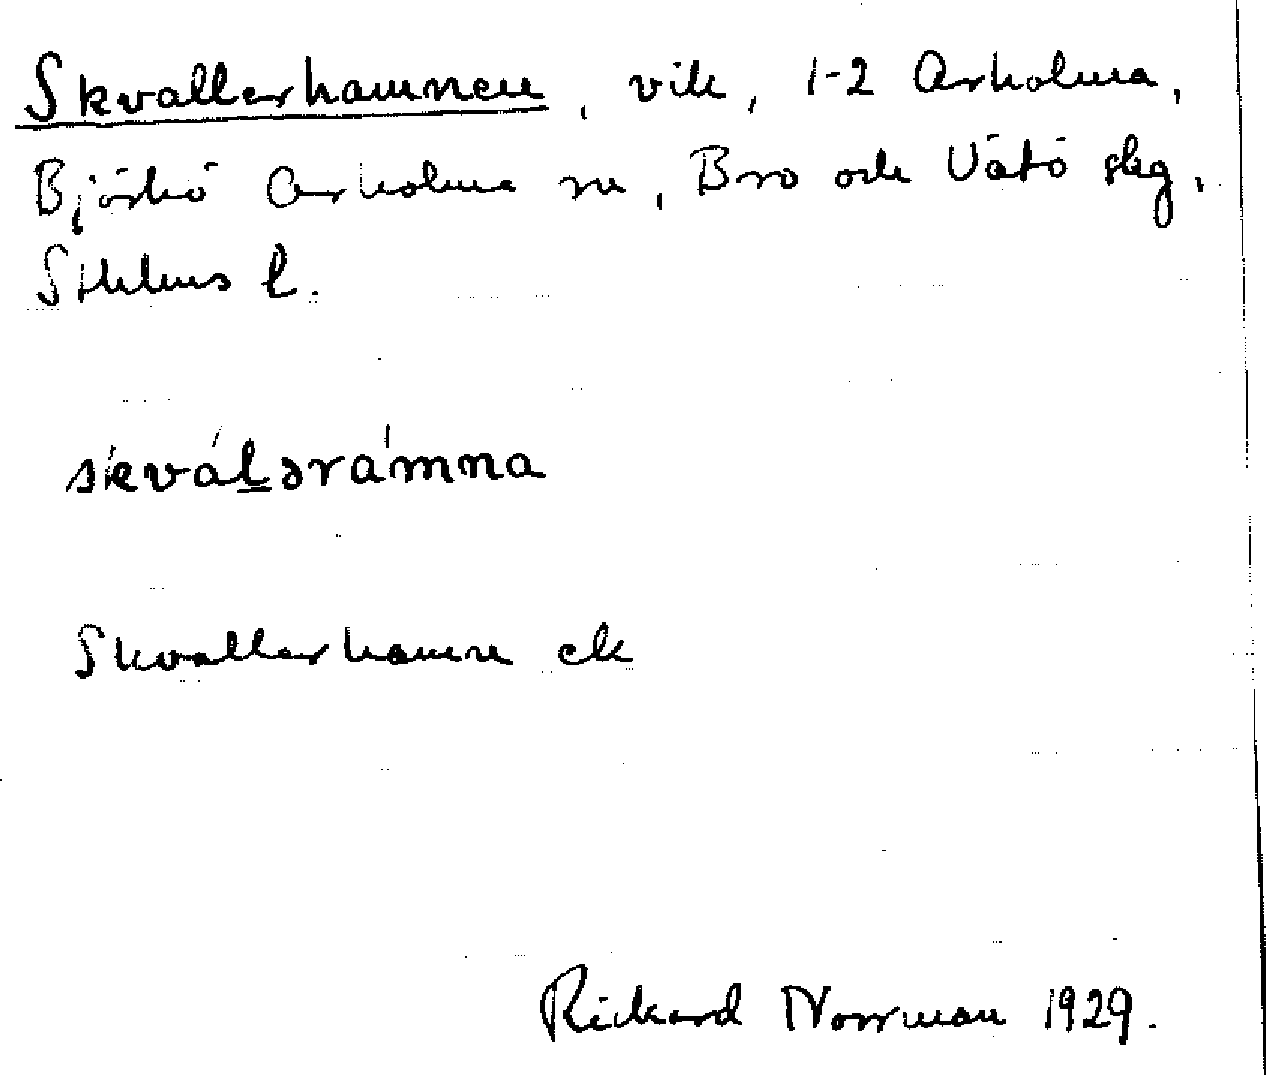 Skvallerhamnen, vik, 1-2 Arholma,
Björkö Arholma sn, Bro och Vätö skg,
Sthlms l.
skválərámna
Skvallerhamn ek
Rickard Norrman 1929.